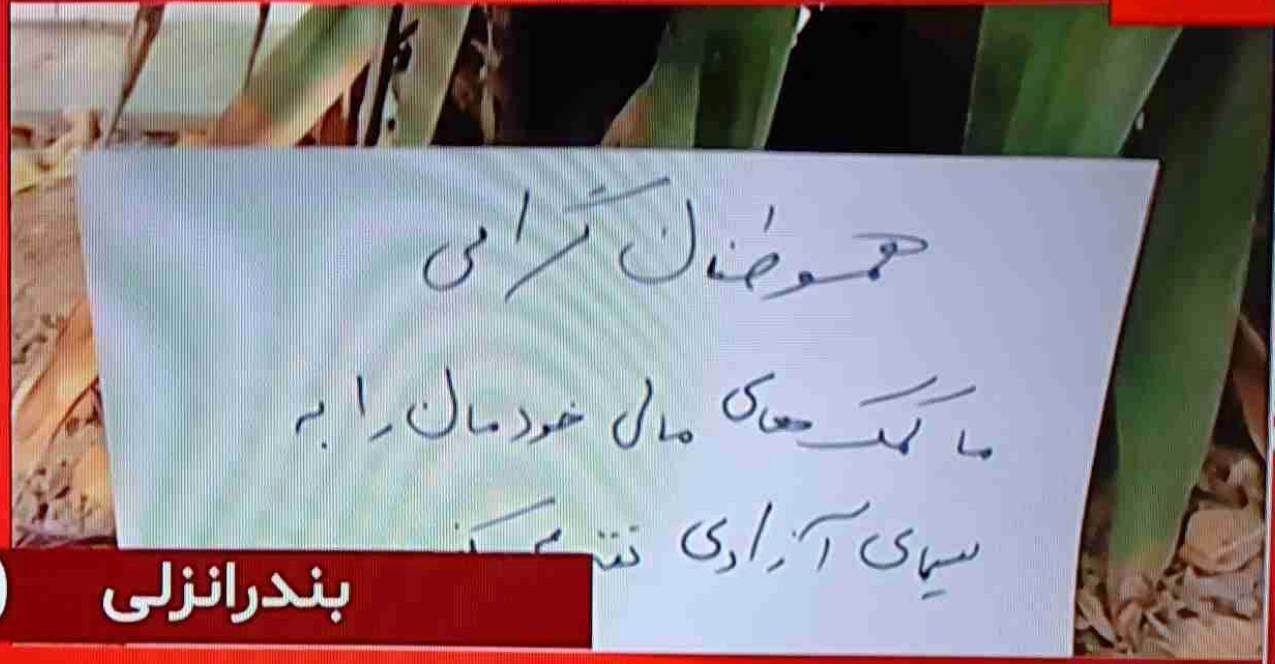 هموطنان گرامی
ما کمک های مالی خودمان را به
سیمای آزادی
بندرانزلی